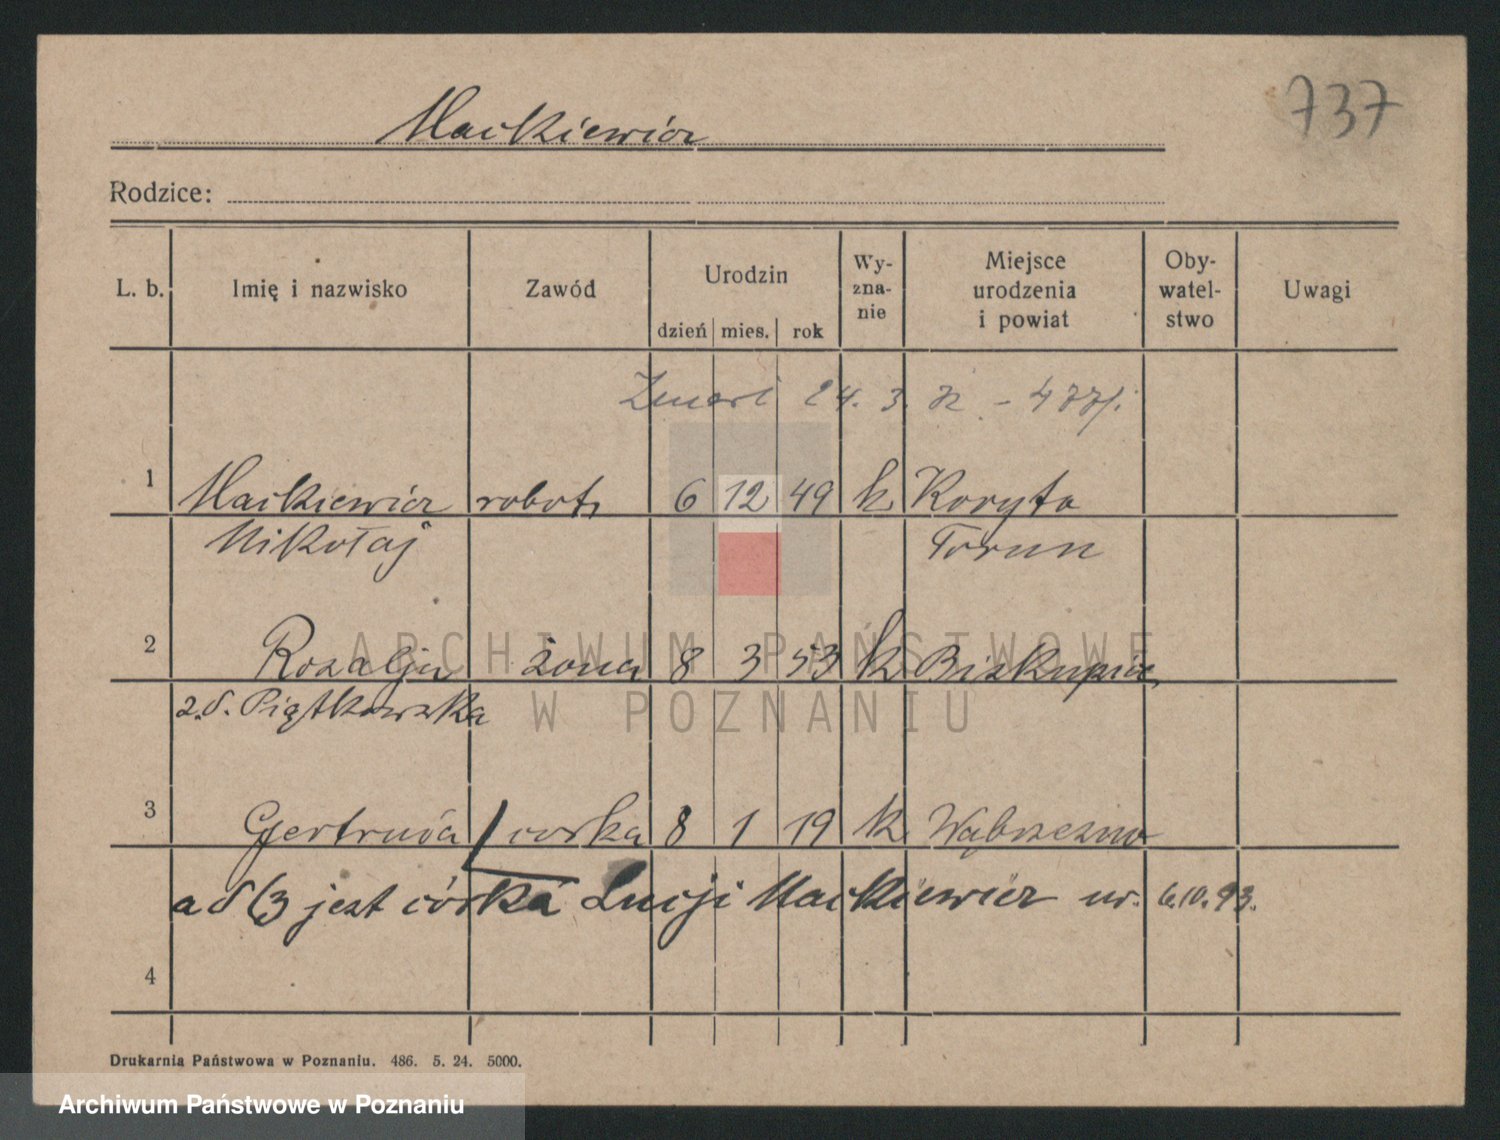 737
Mackiewicz
Rodzice:
L. b. Imię i nazwisko Zawód Urodzin dzień mies. rok Wy-zna-nie Miejsce urodzenia i powiat Oby-watel-stwo Uwagi
Zmarł 24. 3.
1 Mackiewicz robotn 6 12 49 k Koryta
Mikołaj Torun
2 Rozalja żona 8 3 53 k Biskupice
z.d. Piątkowska
3 Gertruda córka 8 1 19 k Wąbrzezno
ad (3 jest córką Lucji Mackiewicz ur. 6.10.93.
4
Drukarnia Państwowa w Poznaniu. 486. 5. 24. 5000.
ARCHIWUM PAŃSTWOWE
W POZNANIU
Archiwum Państwowe w Poznaniu